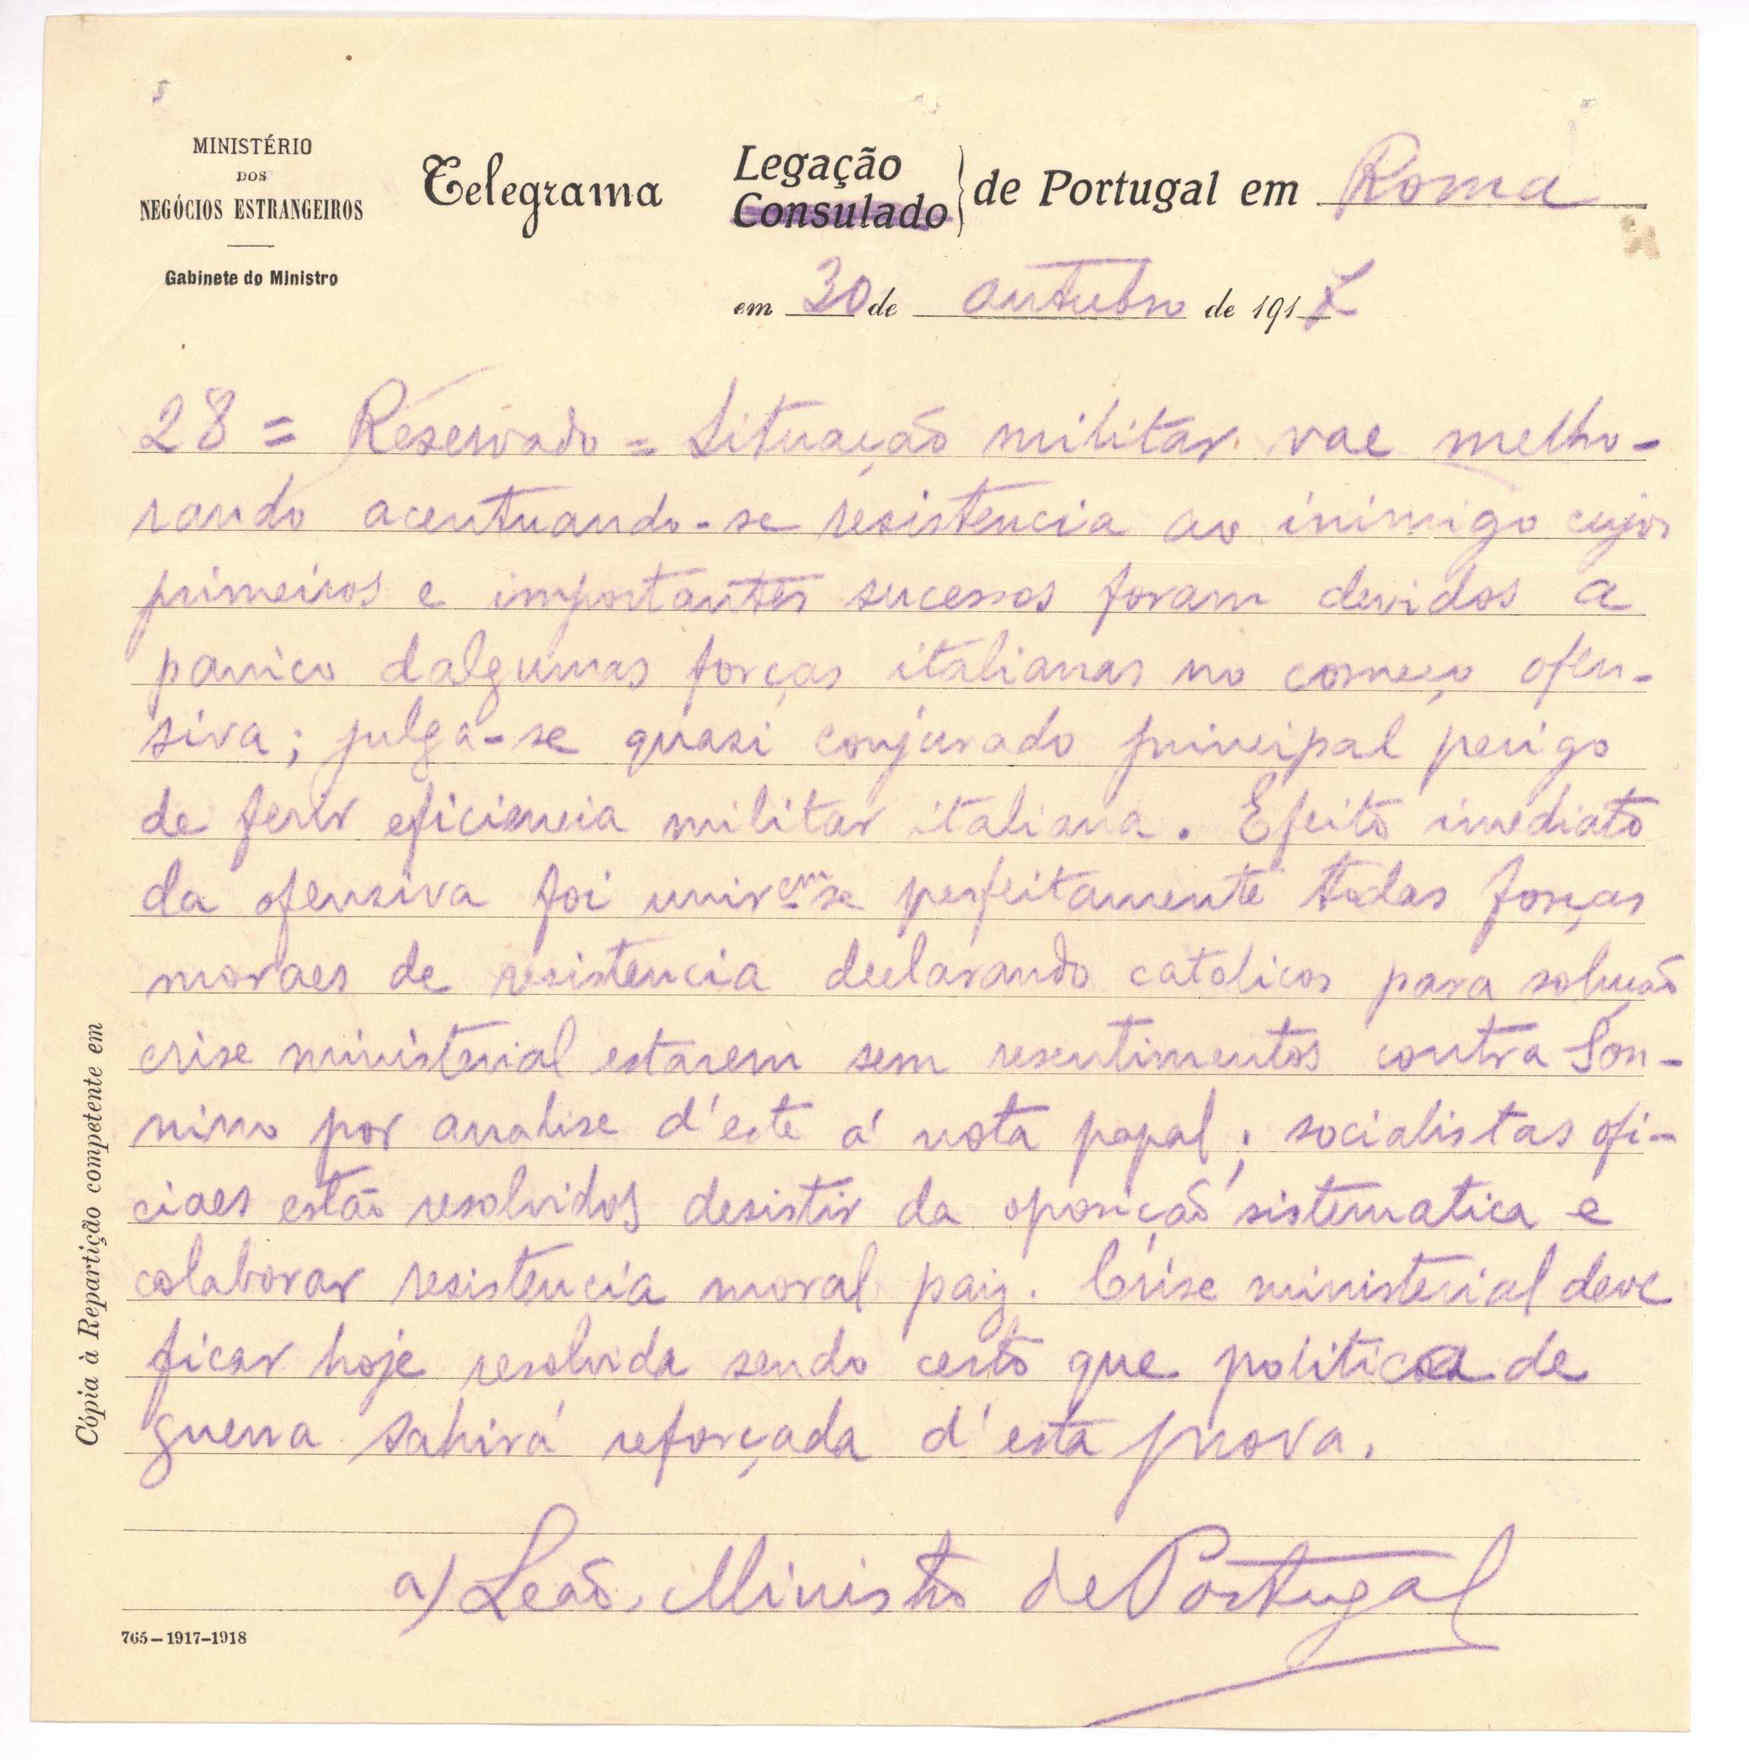 MINISTÉRIO
DOS
NEGÓCIOS ESTRANGEIROS
Gabinete do Ministro
Telegrama
Legação
Consulado
de Portugal em Roma
em 30 de outubro de 1917
28 = Reservado = Situação militar vae melho-
rando acentuando-se resistencia ao inimigo cujos
primeiros e importantes sucessos foram devidos a
panico dalgumas forças italianas no começo ofen-
siva; julga-se quasi conjurado principal perigo
de ferir eficiencia militar italiana. Efeito imediato
da ofensiva foi unirem-se perfeitamente todas forças
moraes de resistencia declarando catolicos para solução
crise ministerial estarem sem resentimentos contra Son-
nino por analise d'este á nota papal; socialistas ofi-
ciaes estão resolvidos desistir da oposição sistematica e
colaborar resistencia moral paiz. Crise ministerial deve
ficar hoje resolvida sendo certo que politica de
guerra sahirá reforçada d'esta prova.
a) Leão, Ministro de Portugal
765–1917–1918
Cópia à Repartição competente em